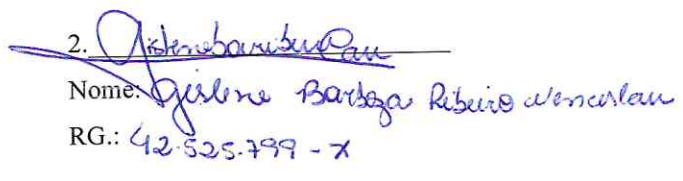 2.
Nome: Gislene Barboza Ribeiro Wenceslau
RG.: 42.525.799-X